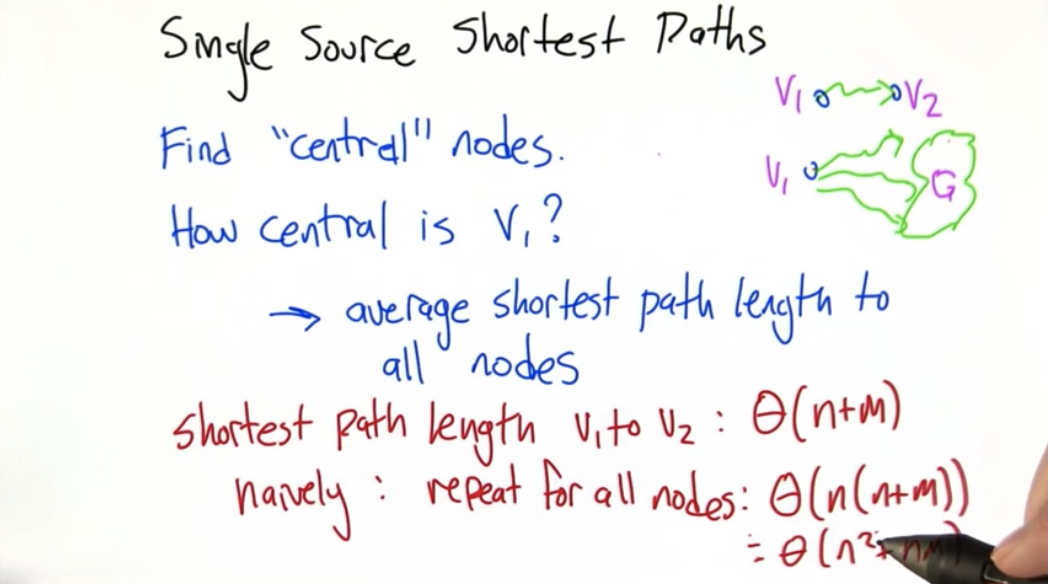 Single Source Shortest Paths
V1 V2
Find "central" nodes.
V1 G
How central is V1?
→ average shortest path length to
all nodes
shortest path length V1 to V2 : Θ(n+m)
naively : repeat for all nodes: Θ(n(n+m))
= Θ(n²+nm)